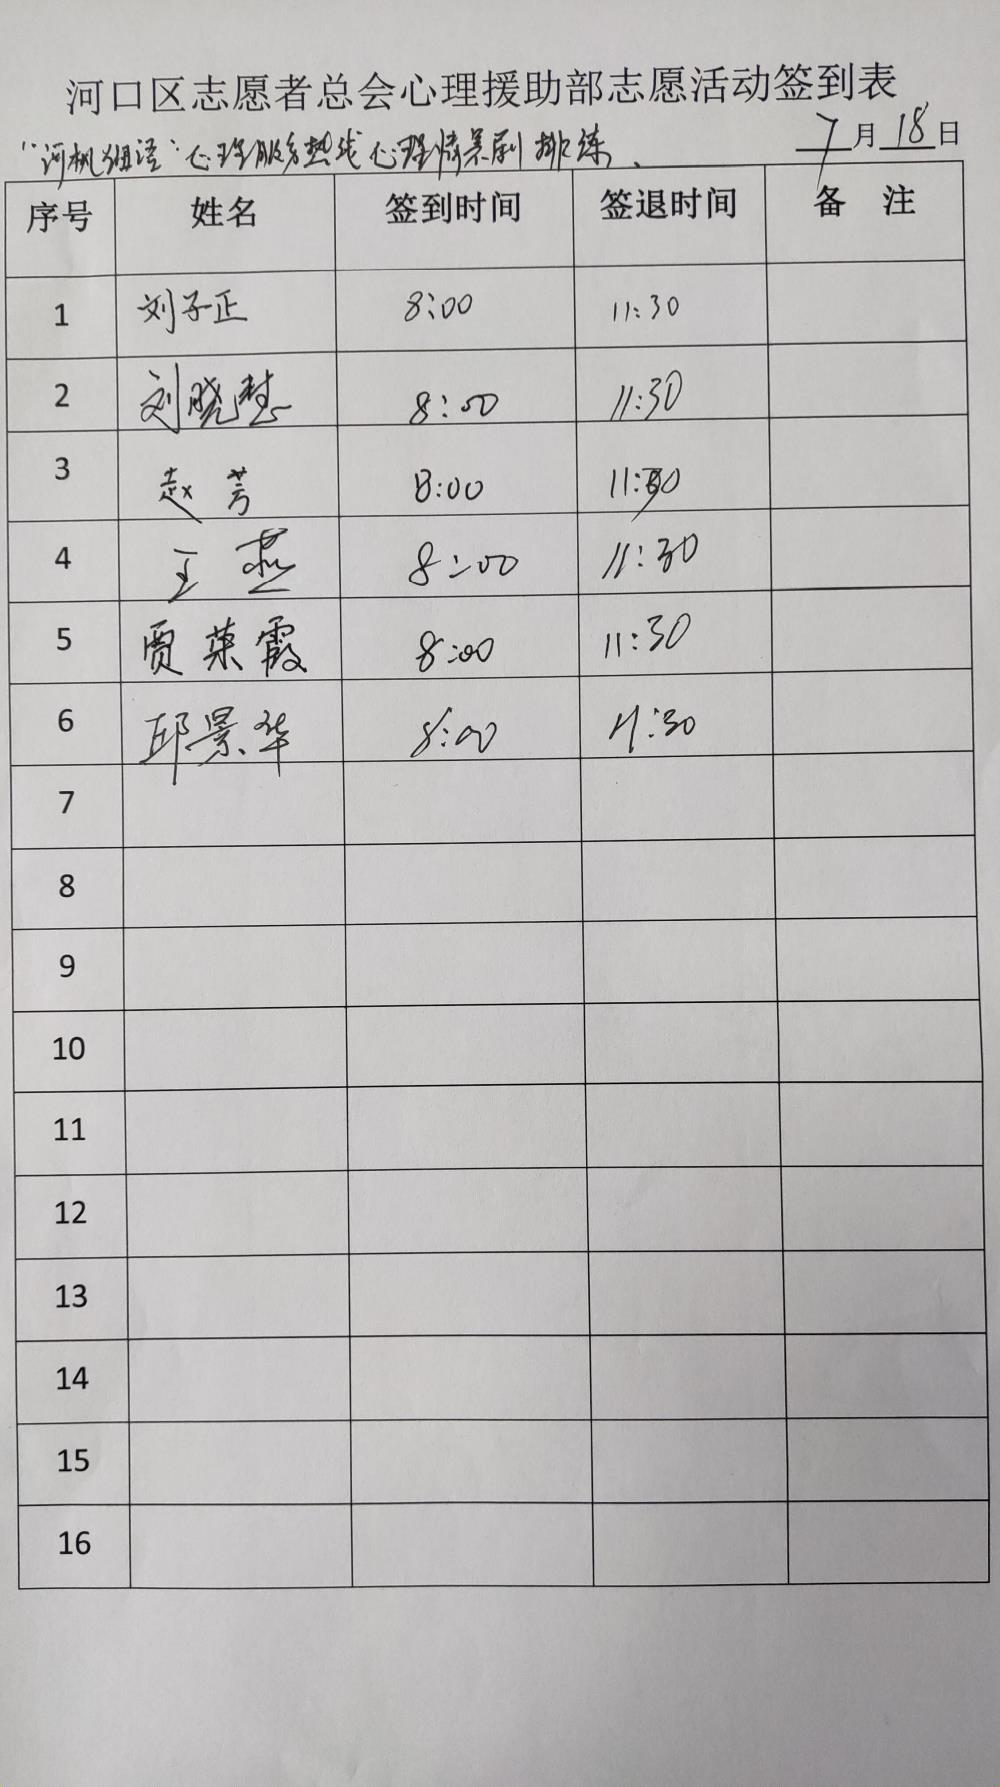 河口区志愿者总会心理援助部志愿活动签到表
7月18日
"河帆细语"心理服务热线心理情景剧排练、
序号 姓名 签到时间 签退时间 备 注
1 刘子正 8:00 11:30
2 刘晓慧 8:00 11:30
3 赵芳 8:00 11:30
4 王燕 8:00 11:30
5 贾荣霞 8:00 11:30
6 邱景华 8:00 11:30
7
8
9
10
11
12
13
14
15
16